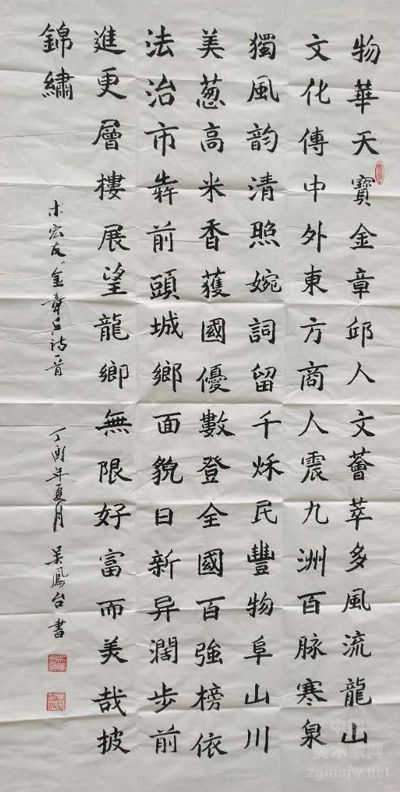 物華天寶金章邱人文薈萃多風流龍山
文化傳中外東方商人震九洲百脉寒泉
獨風韵清照婉詞留千秌民豐物阜山川
美葱高米香獲國優數登全國百強榜依
法治市犇前頭城鄉面貌日新异濶步前
進更層樓展望龍鄉無限好富而美哉披
錦繡
丁酉年夏月 吴鳳台書
zgmsjw.net